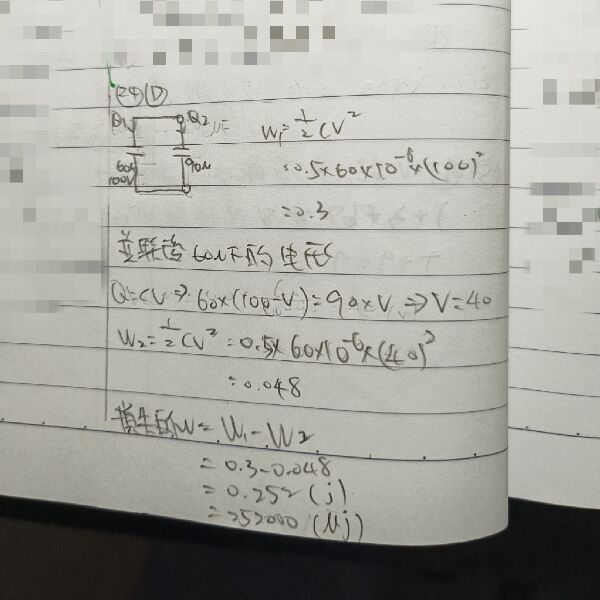 24(D)
Q1 Q2 μF
60μ 100V 90μ
W₁=½CV²
=0.5×60×10⁻⁶×(100)²
=0.3
並聯後60μF的電壓
Q=CV⇒60×(100-V)=90×V⇒V=40
W₂=½CV²=0.5×60×10⁻⁶×(40)²
=0.048
損失的W=W₁-W₂
=0.3-0.048
=0.252(j)
=252000(μj)